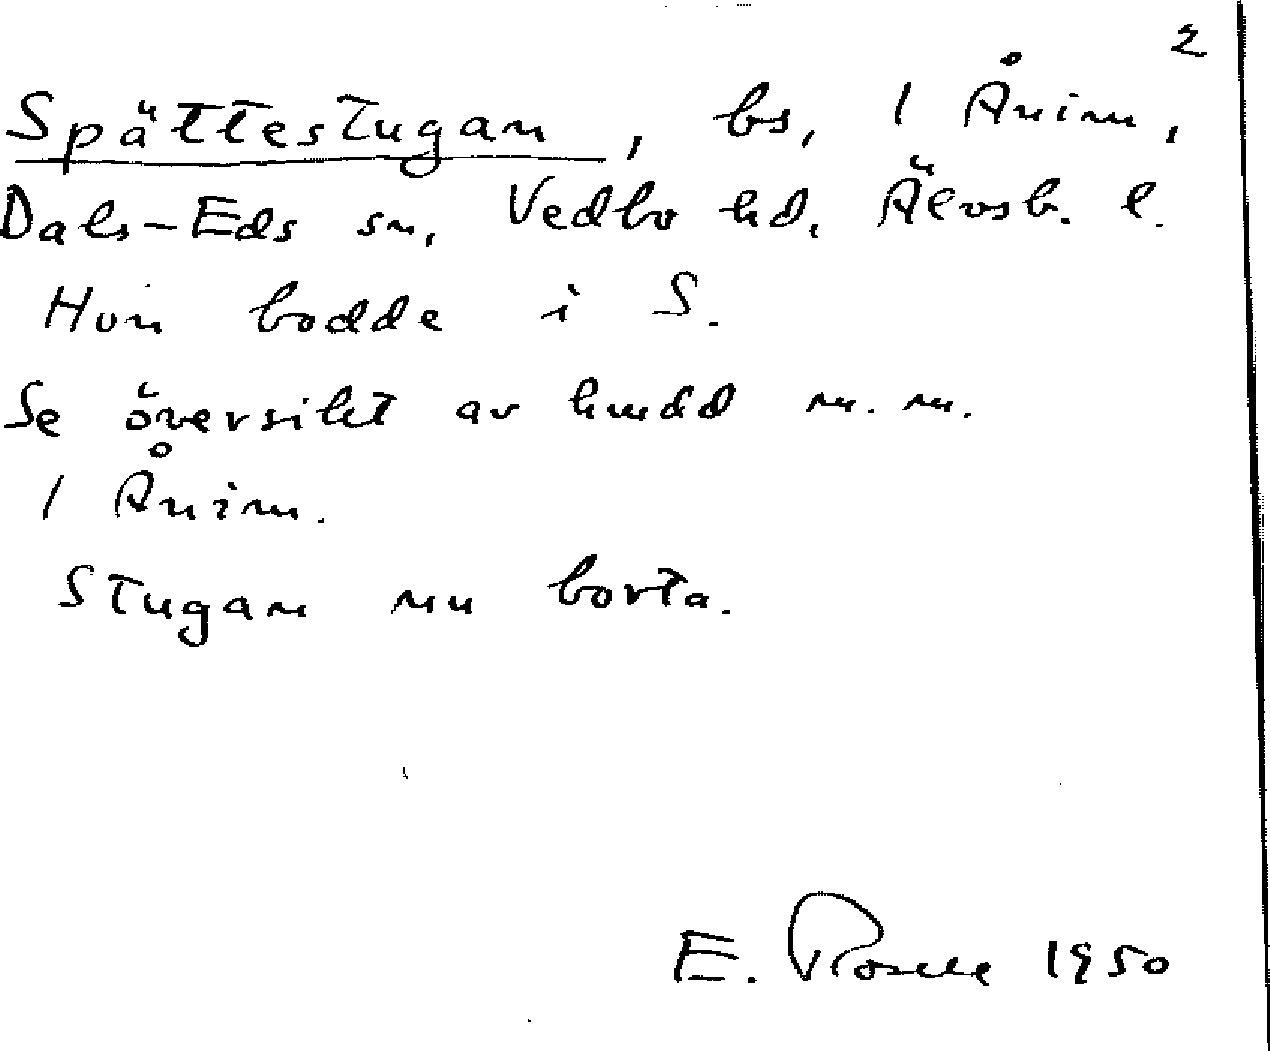 2
Spättestugan, bs, 1 Ånim,
Dals-Eds sn, Vedbo hd, Älvsb. l.
Hon bodde i S.
Se översikt av hmdd m. m.
1 Ånim.
Stugan nu borta.
E. Rosell 1950